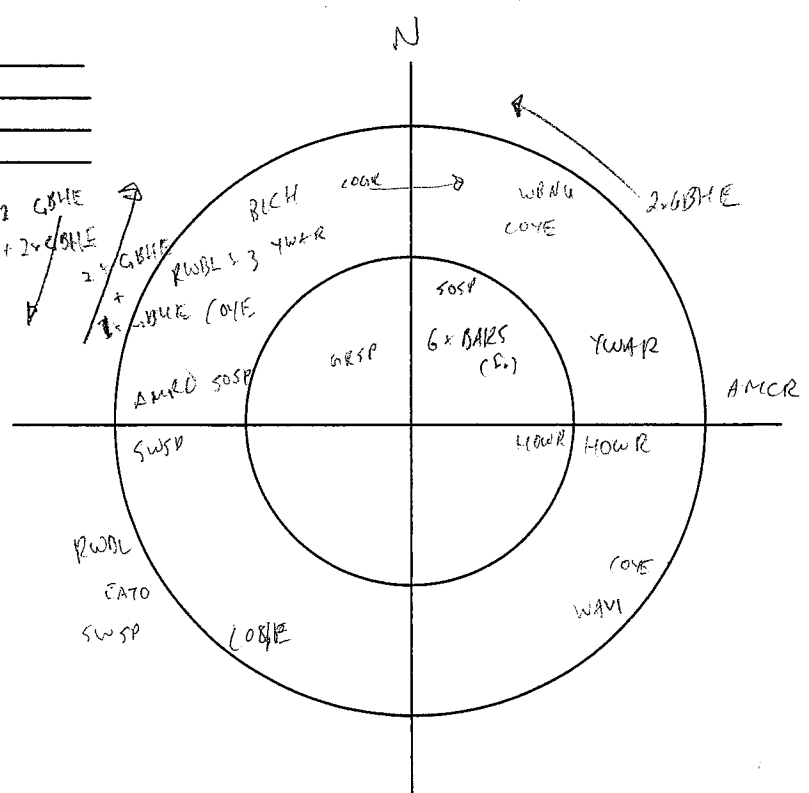 N
GBHE
+ 2x GBHE
2x GBHE
+
1x GBHE
BLCH
COGR
WBNU
COYE
2xGBHE
RWBL x 3
YWAR
COYE
SOSP
6 x BARS
GRSP
YWAR
AMRO SOSP
AMCR
SWSP
HOWR
HOWR
RWBL
EATO
SWSP
COYE
WAVI